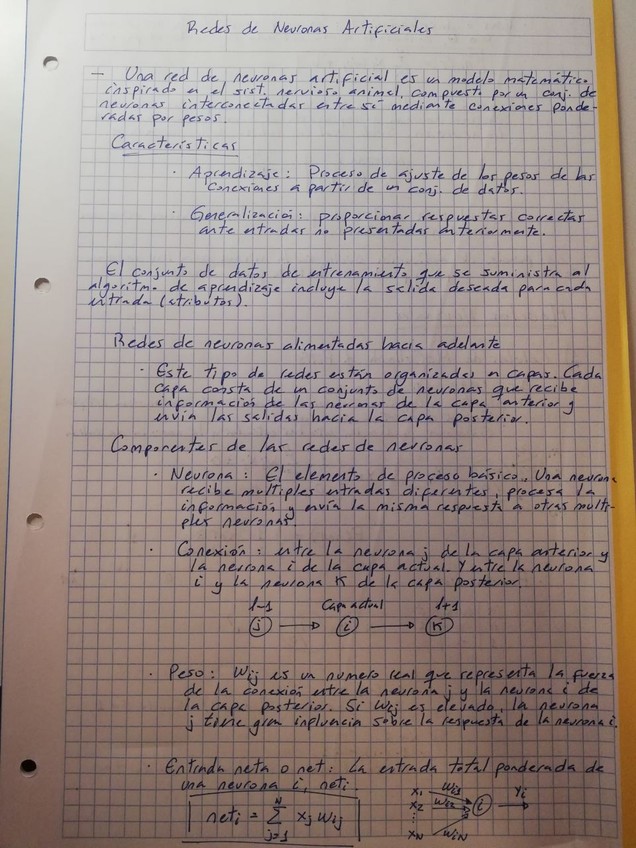 Redes de Neuronas Artificiales
- Una red de neuronas artificial es un modelo matemático
inspirado en el sist. nervioso animal, compuesto por un conj. de
neuronas interconectadas entre sí mediante conexiones ponde-
radas por pesos.
Características
· Aprendizaje: Proceso de ajuste de los pesos de las
conexiones a partir de un conj. de datos.
· Generalización: proporcionar respuestas correctas
ante entradas no presentadas anteriormente.
El conjunto de datos de entrenamiento que se suministra al
algoritmo de aprendizaje incluye la salida deseada para cada
entrada (atributos).
Redes de neuronas alimentadas hacia adelante
· Este tipo de redes están organizadas en capas. Cada
capa consta de un conjunto de neuronas que recibe
información de las neuronas de la capa anterior y
envía las salidas hacia la capa posterior.
Componentes de las redes de neuronas
· Neurona: El elemento de proceso básico. Una neurona
recibe multiples entradas diferentes, procesa la
información y envía la misma respuesta a otras multi-
ples neuronas.
· Conexión: entre la neurona j de la capa anterior y
la neurona i de la capa actual. Y entre la neurona
i y la neurona K de la capa posterior.
l-1 Capa actual l+1
j → i → K
· Peso: Wij es un numero real que representa la fuerza
de la conexión entre la neurona j y la neurona i de
la capa posterior. Si Wij es elevado, la neurona
j tiene gran influencia sobre la respuesta de la neurona i.
· Entrada neta o net: La entrada total ponderada de
una neurona i, neti.
neti = N Σ j=1 xj wij
x1 Wi1
x2 Wi2 i Yi
⋮
xN WiN